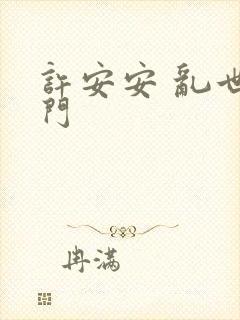 許安安 亂世
門
冉滿